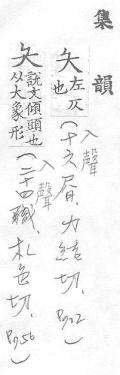 集韻
夨左仄也(入聲十六屑、力結切、)
夨說文傾頭也从大象形(入聲二十四職、札色切、)